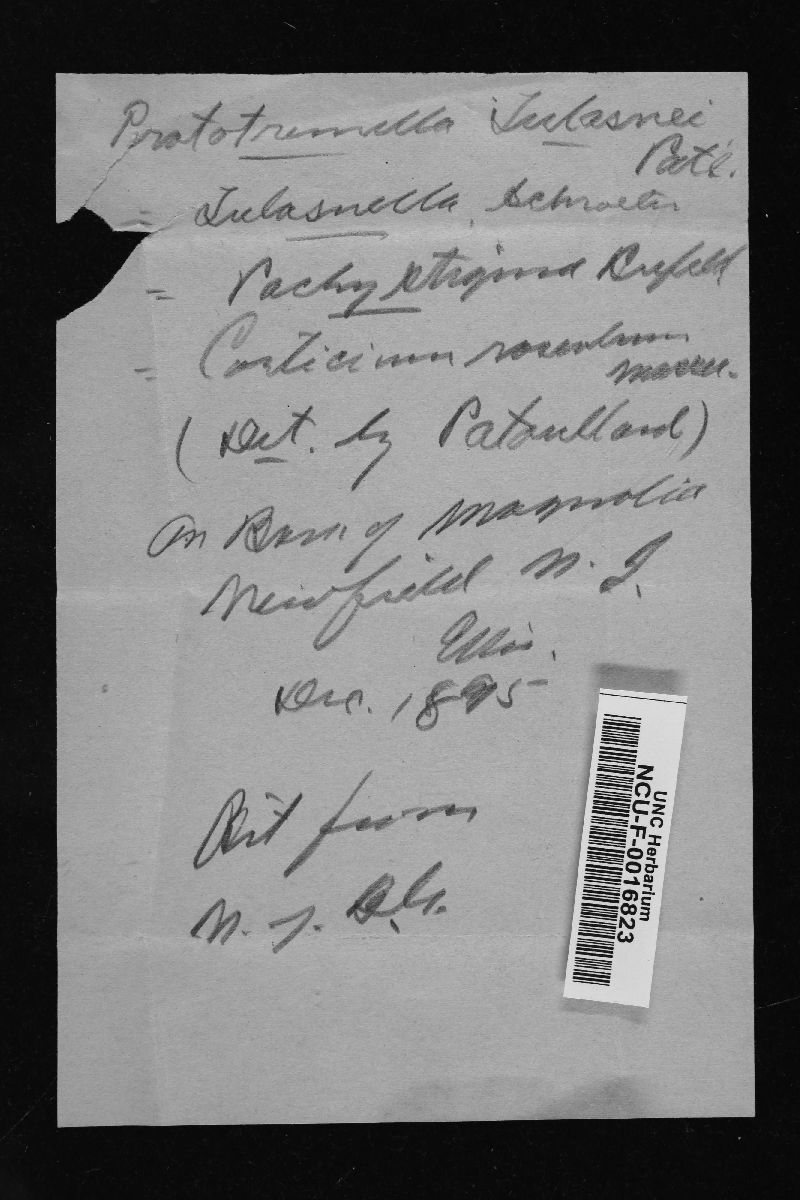 Prototremella Tulasnei
Pat.
= Tulasnella, Schroeter
= Pachysterigma Brefeld
= Corticium roseolum
Massee.
(Det. by Patouillard)
On Bark of Magnolia
Newfield N. J.
Ellis.
Dec. 1895
Bit from
N. Y. B. G.
UNC Herbarium
NCU-F-0016823